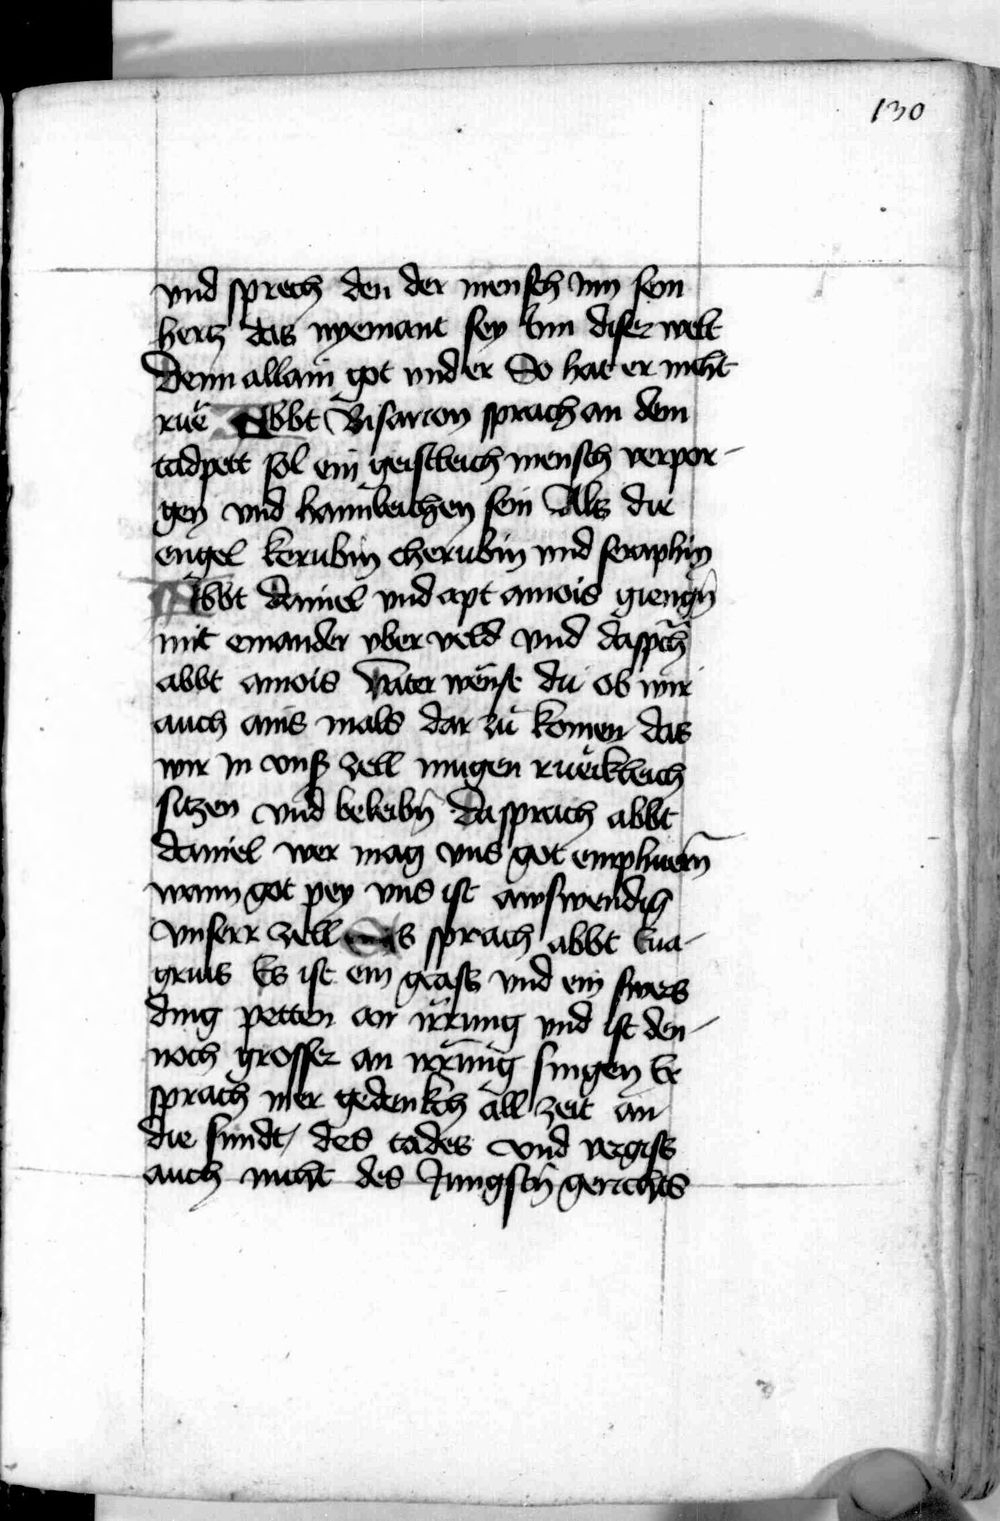 130
vnd sprech den der mensch inn sein
hertz das nyemant sey inn diser welt
Denn allain got vnd er So hat er nicht
rue Abbt Bisarion sprach an dem
tadpett sol ein geistleich mensch verpor-
gen vnd haimleichen sein Als die
engel kerubin cherubin vnd seraphin
Abbt daniel vnd apt amois giengn̄
mit einander vber veld vnd da spch̄
abbt amois Vater wenst du ob wir
auch ains mals dar zu komen das
wir in vnß zell mugen rueikleich
sitzen vnd beleibn̄ Da sprach abbt
daniel wer mag vns got emphuern̄
wann got pey vns ist awswendig
vnserr zell Es sprach abbt Eua-
grius Es ist ein gross vnd ein swers
ding petten an irrung vnd ist den-
noch grosser an irrung singen Er
sprach mer gedenkch all zeit an
die sundt / des tades vnd vergiss
auch nicht des Jungstn̄ gerichts